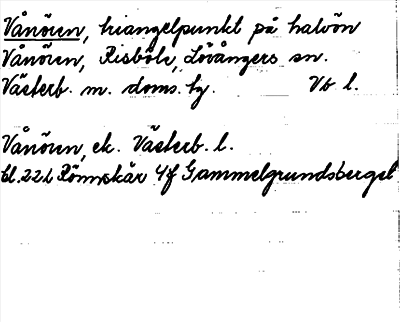 Vånören, triangelpunkt på halvön
Vånören, Risböle, Lövångers sn.
Västerb. m. doms. tg. Vb l.
Vånören, ek. Västerb. l.
bl. 22 L Rönnskär 4f Gammelgrundsberget